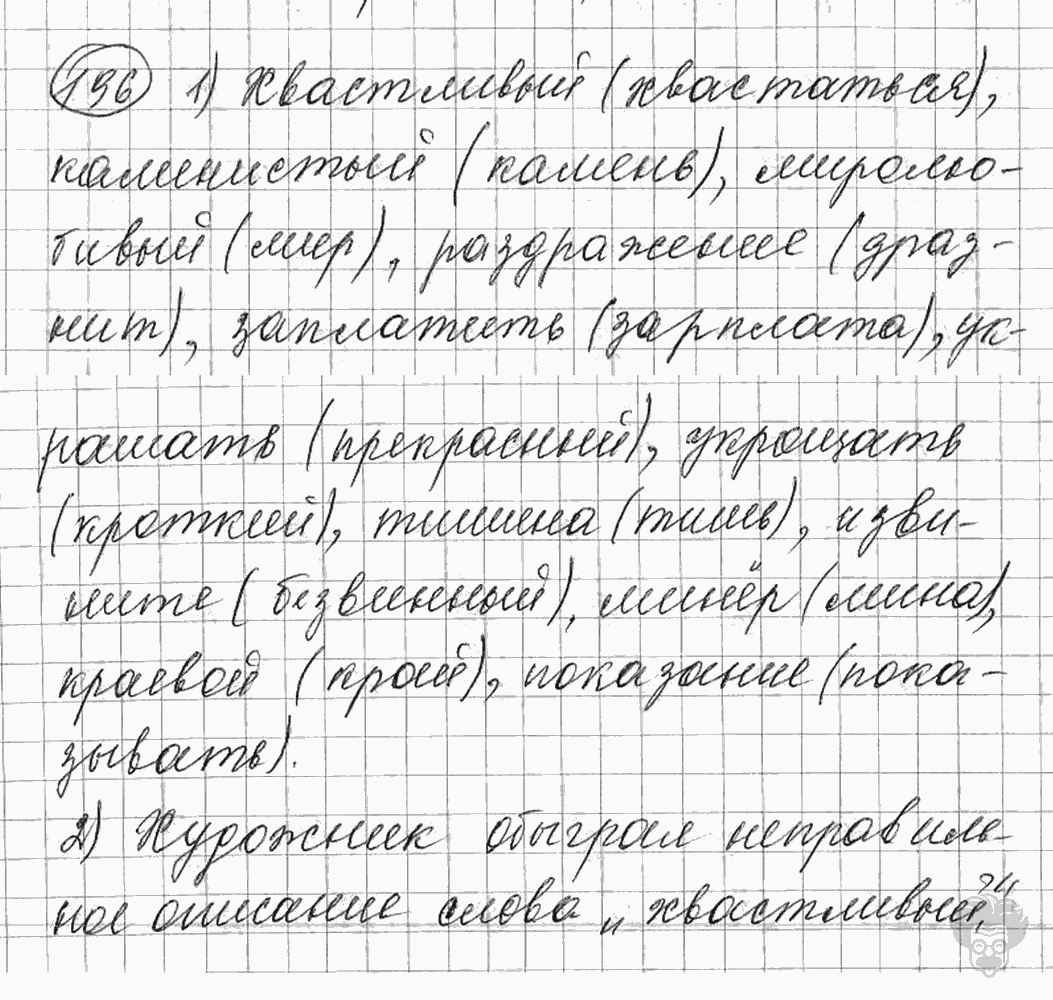 196 1) Хвастливый (хвастаться),
каменистый (камень), миролю-
бивый (мир), раздражение (драз-
нит), заплатить (зарплата), ук-
рашать (прекрасный), укрощать
(кроткий), тишина (тишь), изви-
ните (безвинный), минёр (мина),
краевой (край), показание (пока-
зывать).
2) Художник обыграл неправиль-
ное описание слова „хвастливый"